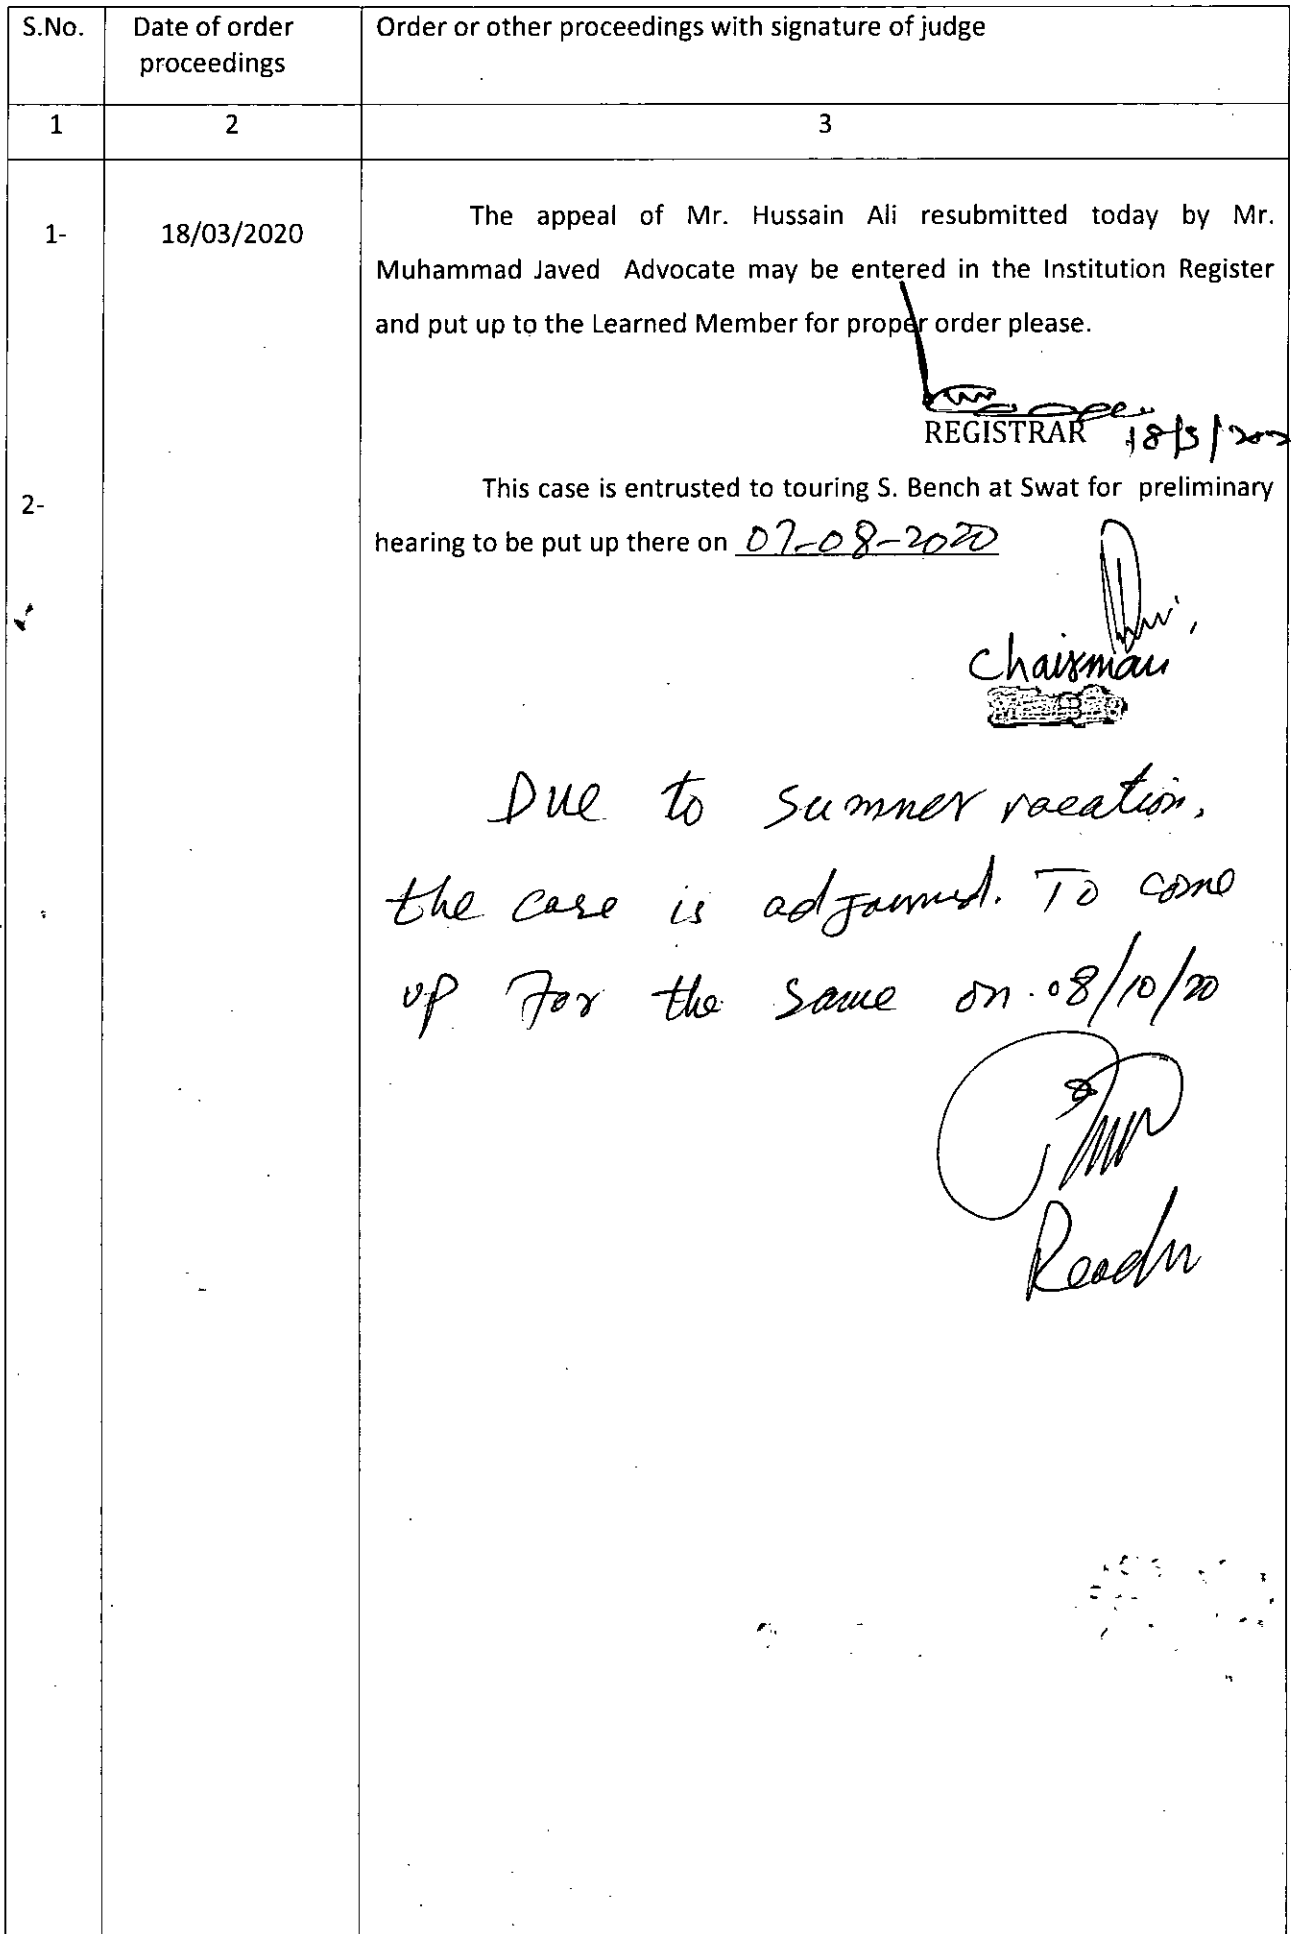 S.No.
Date of order
proceedings
Order or other proceedings with signature of judge
1
2
3
1-
18/03/2020
The appeal of Mr. Hussain Ali resubmitted today by Mr.
Muhammad Javed Advocate may be entered in the Institution Register
and put up to the Learned Member for proper order please.
REGISTRAR
18/3/202
2-
This case is entrusted to touring S. Bench at Swat for preliminary
hearing to be put up there on 07-08-2020
Chairman
Due to summer vacation,
the case is adjourned. To come
up for the same on 08/10/20
Reader